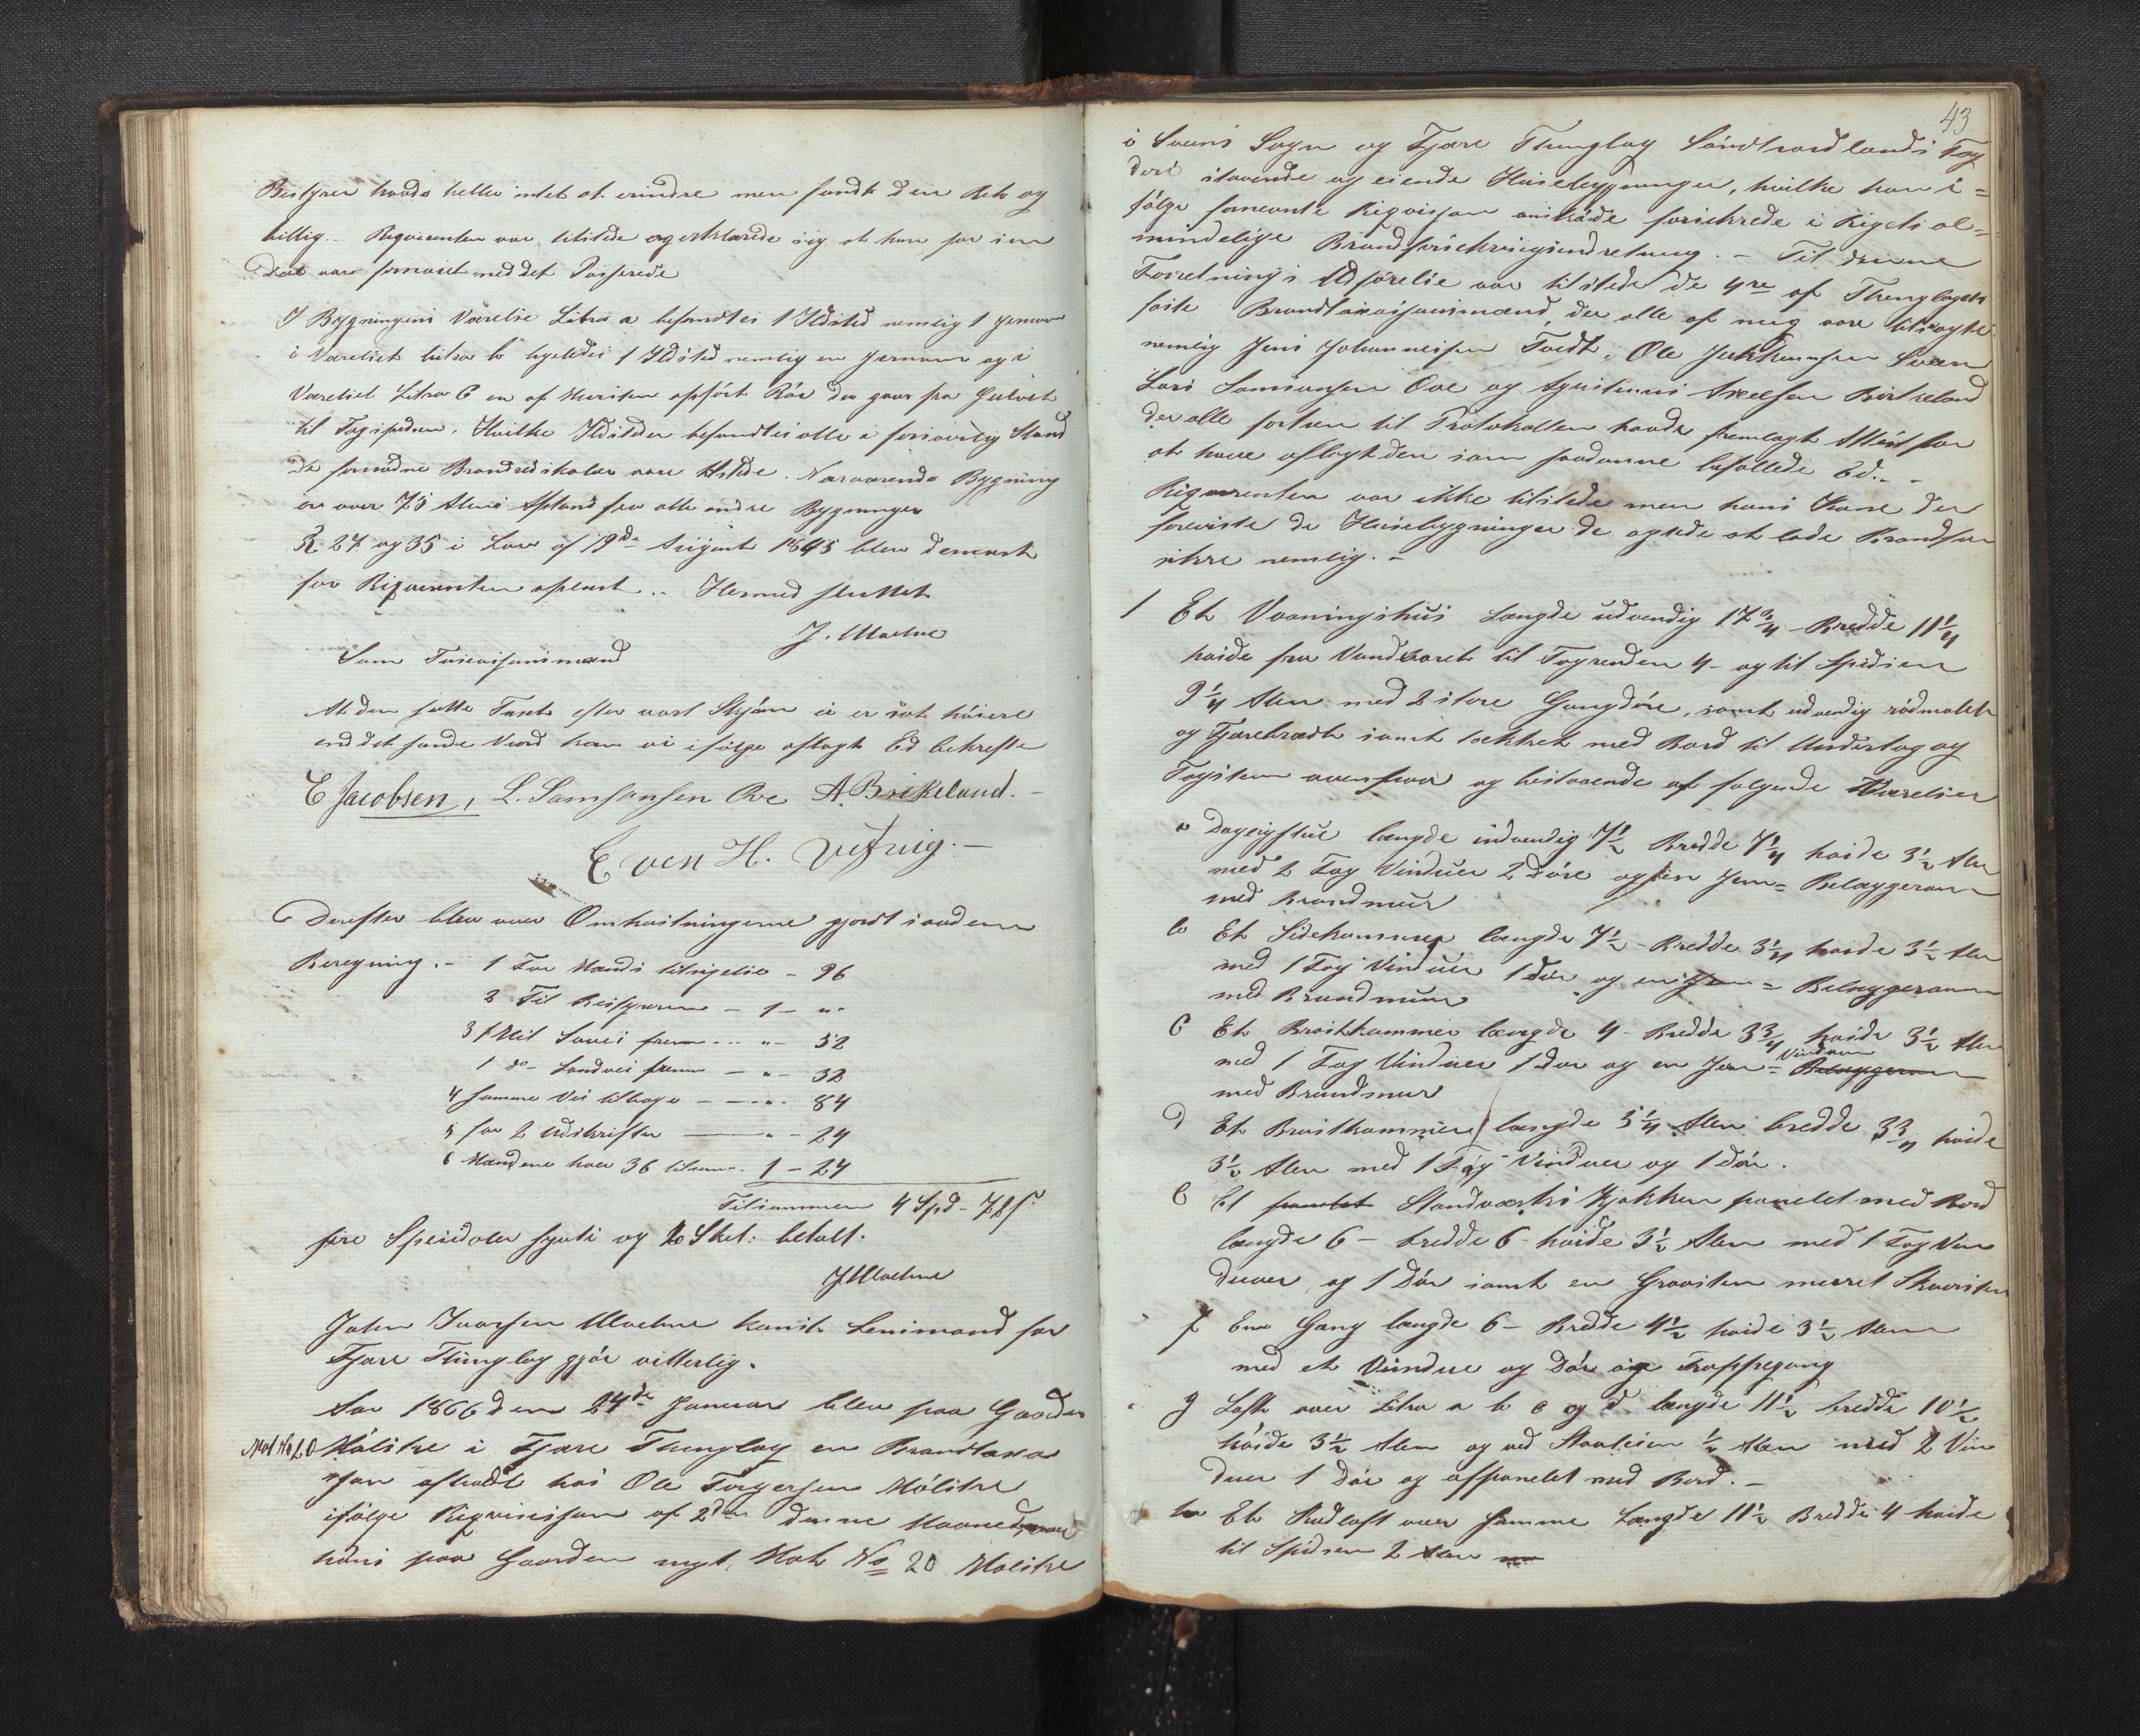 Bestyrer havde heller intet at erindre men fandt den Ret og
billig. – Requirenten var tilstede og erklærede sig at han for sin
Deel var fornøiet med det Passerede
I Bygningens Værelse Litra a befandtes 1 Ildsted nemlig 1 Jernovn
i Værelset Litra b ligeledes 1 Ildsted nemlig en Jernovn og i
Værelset Litra C en af Mursten opført Rør der gaar fra Gulvet
til Tagspidsen. Hvilke Ildsteder befandtes alle i forsvarlig Stand
de fornødne Brandredskaber vare tilstede. Nærværende Bygning
er over 75 Alens Afstand fra alle andre Bygninger
§. 27 og 35 i Lov af 19de August 1845 blev dernæst
for Requirenten oplæst. . Hermed sluttet
J. Mæhne
Som Taxasjonsmænd
At den satte Taxt efter vort Skjøn ei er sat høiere
end det sande Værd kan vi ifølge aflagt Ed bekræfte
E Jacobsen, L. Samsonsen Ove A. Brikeland. –
Even H. –
Derefter blev over Omkostningerne gjordt saadan
Beregning. – 1 For Mænds tilsigelse – 96
2 Til Bestyreren – 1 – "
3 1 Mil Søvei frem – " – 52
1 do Landvei frem – " – 32
4 samme Vei tilbage – " – 84
5 for 2 Udskrifter – " – 24
6 Mændene hver 36 tilsam. 1 – 24
Tilsammen 4 Spd – 72 s
fire Speciedaler sytti og to Skil: betalt.
J Mæhne
John Ivarsen Mæhne konst. Lensmand for
Fjære Thinglag gjør vitterlig.
Aar 1866 den 24de Januar blev paa Gaarden
Mat No 20 Mølstre i Fjære Thinglag en Brandtaxa
sjon afholdt hos Ole Torgersen Mølstre
ifølge Reqvisisjon af 2den denne Maaned over
hans paa Gaarden nyt. Mat No 20 Mølstre
43
i Sveens Sogn og Fjære Thinglag Søndhordlands Fog
deri staaende og eiende Huusebygninger, hvilke han i =
følge fornevnte Reqvisjon ønskede forsikrede i Rigets al =
mindelige Brandforsikringsindretning. – Til denne
Forretnings Udførelse var tilstede de 4re af Thinglagets
faste Brandtaxasjonsmænd, der alle af meg vare tilsagte
nemlig Jens Johannessen Tvedt, Ole Sveen
Lars Samsonsen Ove og Axelsen Birkeland
der alle forhen til Protokollen havde fremlagt Attest for
at have aflagt den som saadanne befallede Ed. –
Reqvirenten var ikke tilstede men hans Kone der
foreviste de Huusebygninger de agtede at lade Brandfor
sikre nemlig. –
1 Et Vaaningshus Længde udvendig 17 3/4 Bredde 11 1/4
høide fra Vandbordet til Tagrenden 4 – og til Spidsen
9 1/4 Alen med 2 store Gangdøre, samt udvendig rødmalet
og Fjærebrædt samt tækket med Bord til Undertag og
Tagsteen ovenpaa og bestaaende af følgende Værelser
a Dagligstue længde indvendig 7 1/2 Bredde 7 1/4 høide 3 1/2 Alen
med 2 Fag Vinduer 2 Døre og en Jern = Belæggerovn
med Brandmuur
b Et Sidekammer længde 7 1/2 – Bredde 3 1/4 høide 3 1/2 Alen
med 1 Fag Vinduer 1 Dør og en Jern = Belæggerovn
med Brandmuur
C Et Brøstkammer længde 4 – Bredde 3 3/4 høide 3 1/2 Alen
med 1 Fag Vinduer 1 Dør og en Jern = Vindovn Belæggerovn
med Brandmuur
d Et Brøstkammer længde 5 1/4 Alen bredde 3 3/4 høide
3 1/2 Alen med 1 Fag Vinduer og 1 Dør.
e Et panelet Standværks Kjøkken panelet med Bord
længde 6 – bredde 6 høide 3 1/2 Alen med 1 Fag Vin
duuer og 1 Dør samt en Graasten murret Skorsten
f En Gang længde 6 – Bredde 4 1/2 høide 3 1/2 Alen
med et Vindue og Dør og Trappegang
g Loft over Litra a b c og d længde 11 1/2 bredde 10 1/2
høide 3 1/2 Alen og ved 1/2 Alen med 2 Vin
duer 1 Dør og afpanelet med Bord. –
h Et Rødloft over samme Længde 11 1/2 Bredde 4 høide
til Spidsen 2 Alen